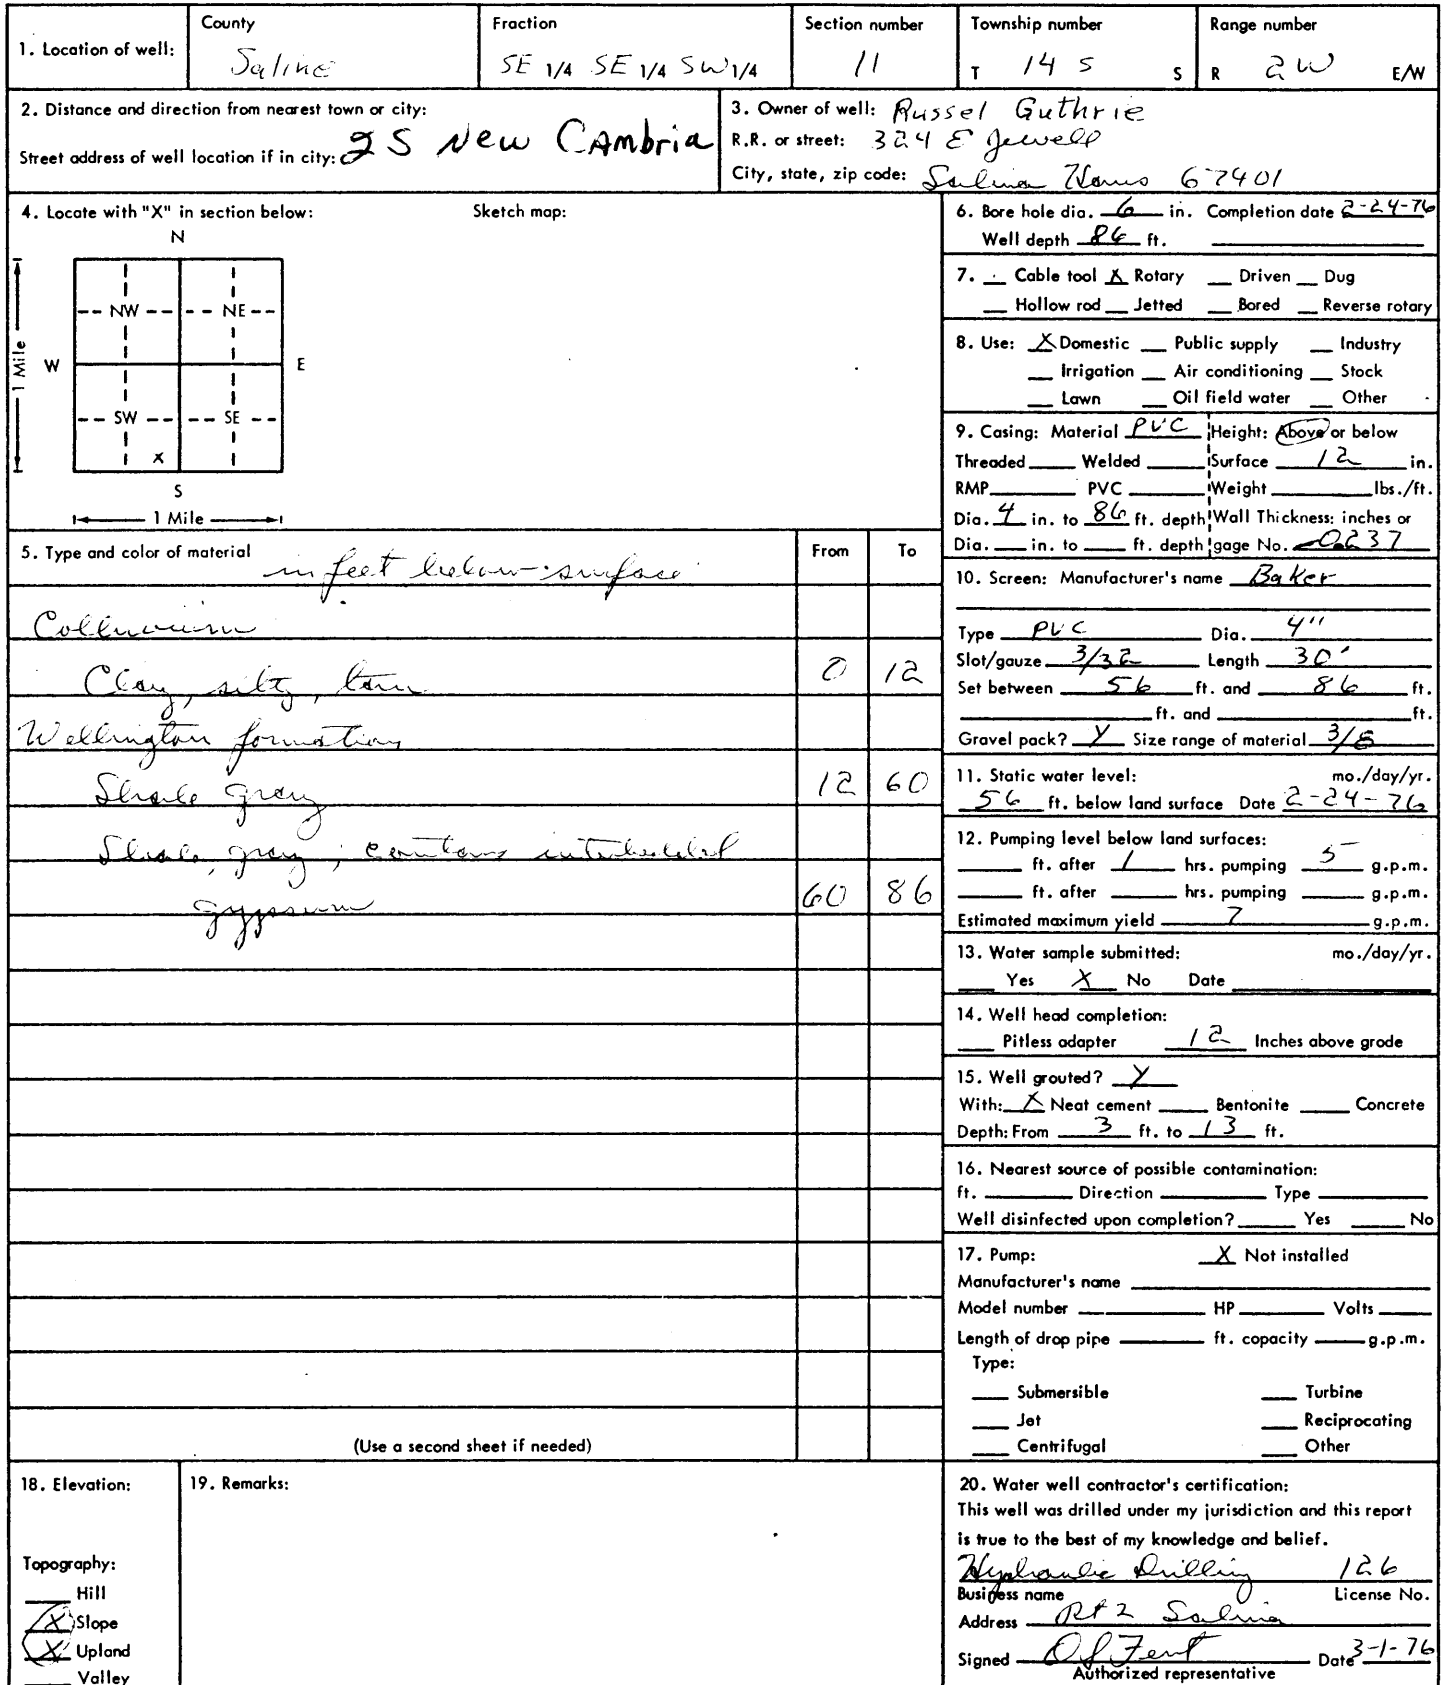 1. Location of well:
County
Saline
Fraction
SE 1/4 SE 1/4 SW 1/4
Section number
11
Township number
T 14 S S
Range number
R 2W E/W
2. Distance and direction from nearest town or city:
Street address of well location if in city: 2 S New Cambria
3. Owner of well: Russel Guthrie
R.R. or street: 324 E Jewell
City, state, zip code: Salina Kans 67401
4. Locate with "X" in section below:
Sketch map:
N
NW NE
W E
1 Mile
SW SE
X
S
1 Mile
5. Type and color of material
in feet below surface
From To
Colluvium
Clay, silty, tan 0 12
Wellington formation
Shale gray 12 60
Shale, gray, contains interbedded
gypsum 60 86
(Use a second sheet if needed)
6. Bore hole dia. 6 in. Completion date 2-24-76
Well depth 86 ft.
7. __ Cable tool X Rotary __ Driven __ Dug
__ Hollow rod __ Jetted __ Bored __ Reverse rotary
8. Use: X Domestic __ Public supply __ Industry
__ Irrigation __ Air conditioning __ Stock
__ Lawn __ Oil field water __ Other
9. Casing: Material PVC Height: Above or below
Threaded ____ Welded ____ Surface 12 in.
RMP ____ PVC ____ Weight ____ lbs./ft.
Dia. 4 in. to 86 ft. depth Wall Thickness: inches or
Dia. __ in. to __ ft. depth gage No. 0.237
10. Screen: Manufacturer's name Baker
Type PVC Dia. 4"
Slot/gauze 3/32 Length 30'
Set between 56 ft. and 86 ft.
____ ft. and ____ ft.
Gravel pack? Y Size range of material 3/8
11. Static water level: mo./day/yr.
56 ft. below land surface Date 2-24-76
12. Pumping level below land surfaces:
____ ft. after 1 hrs. pumping 5 g.p.m.
____ ft. after ____ hrs. pumping ____ g.p.m.
Estimated maximum yield 7 g.p.m.
13. Water sample submitted: mo./day/yr.
__ Yes X No Date ____
14. Well head completion:
__ Pitless adapter 12 Inches above grade
15. Well grouted? Y
With: X Neat cement ____ Bentonite ____ Concrete
Depth: From 3 ft. to 13 ft.
16. Nearest source of possible contamination:
ft. ____ Direction ____ Type ____
Well disinfected upon completion? ____ Yes ____ No
17. Pump: X Not installed
Manufacturer's name ____
Model number ____ HP ____ Volts ____
Length of drop pipe ____ ft. capacity ____ g.p.m.
Type:
__ Submersible __ Turbine
__ Jet __ Reciprocating
__ Centrifugal __ Other
18. Elevation:
Topography:
__ Hill
X Slope
X Upland
__ Valley
19. Remarks:
20. Water well contractor's certification:
This well was drilled under my jurisdiction and this report
is true to the best of my knowledge and belief.
Hydraulic Drilling 126
Business name License No.
Address Rt 2 Salina
Signed O S Fent Date 3-1-76
Authorized representative